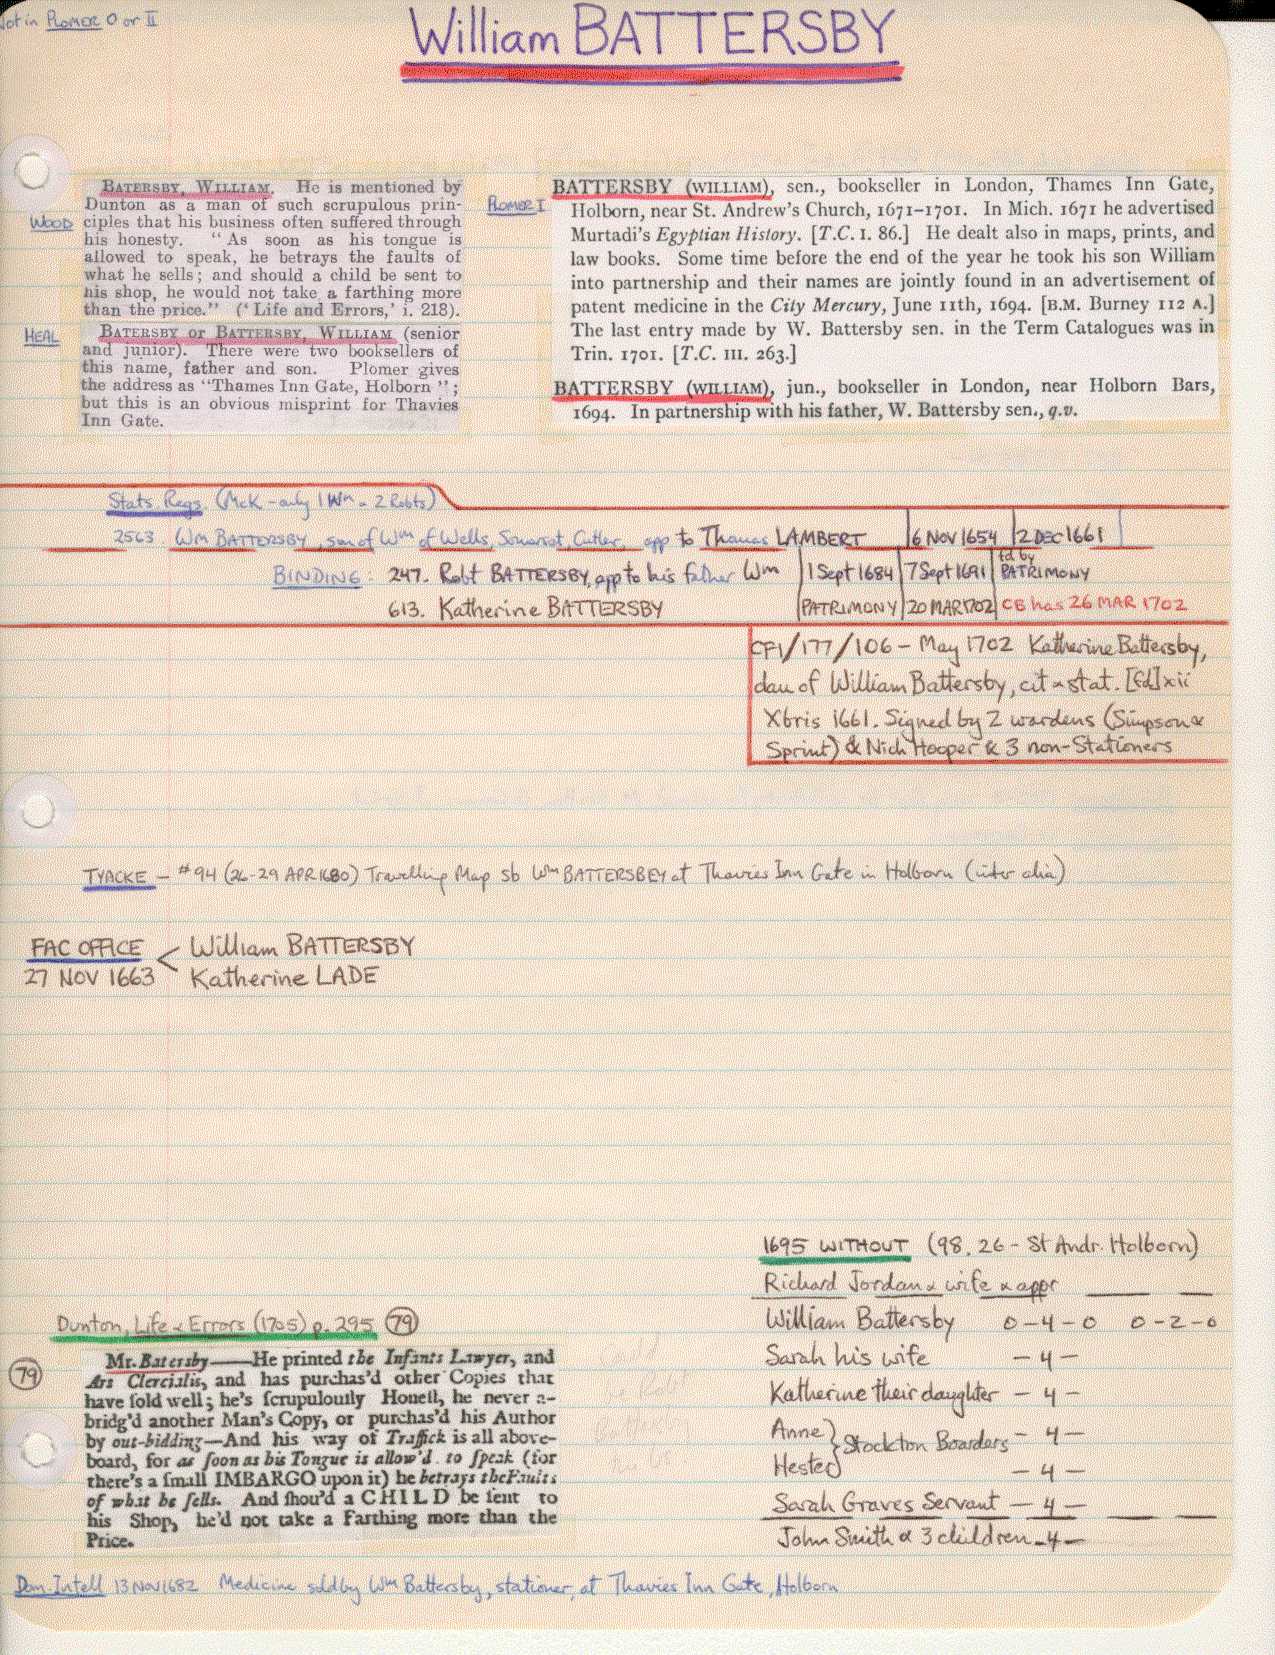 Not in PLOMER O or II
William BATTERSBY
WOOD
BATERSBY, WILLIAM. He is mentioned by
Dunton as a man of such scrupulous prin-
ciples that his business often suffered through
his honesty. "As soon as his tongue is
allowed to speak, he betrays the faults of
what he sells; and should a child be sent to
his shop, he would not take a farthing more
than the price." ('Life and Errors,' i. 218).
HEAL
BATERSBY OR BATTERSBY, WILLIAM (senior
and junior). There were two booksellers of
this name, father and son. Plomer gives
the address as "Thames Inn Gate, Holborn";
but this is an obvious misprint for Thavies
Inn Gate.
PLOMER I
BATTERSBY (WILLIAM), sen., bookseller in London, Thames Inn Gate,
Holborn, near St. Andrew's Church, 1671–1701. In Mich. 1671 he advertised
Murtadi's Egyptian History. [T.C. I. 86.] He dealt also in maps, prints, and
law books. Some time before the end of the year he took his son William
into partnership and their names are jointly found in an advertisement of
patent medicine in the City Mercury, June 11th, 1694. [B.M. Burney 112 A.]
The last entry made by W. Battersby sen. in the Term Catalogues was in
Trin. 1701. [T.C. III. 263.]
BATTERSBY (WILLIAM), jun., bookseller in London, near Holborn Bars,
1694. In partnership with his father, W. Battersby sen., q.v.
Stats. Regs. (McK - only 1 Wm & 2 Robts)
2563. Wm BATTERSBY, son of Wm of Wells, Somerset, Cutler, app to Thomas LAMBERT 6 NOV 1654 2 DEC 1661
BINDING: 247. Robt BATTERSBY, app to his father Wm 1 Sept 1684 7 Sept 1691 fd by PATRIMONY
613. Katherine BATTERSBY PATRIMONY 20 MAR 1702 CB has 26 MAR 1702
CF1/177/106 - May 1702 Katherine Battersby,
dau of William Battersby, cit & stat. [fd] xii
Xbris 1661. Signed by 2 wardens (Simpson &
Sprint) & Nich Hooper & 3 non-Stationers
TYACKE - #94 (26-29 APR 1680) Travelling Map sb Wm BATTERSBEY at Thavies Inn Gate in Holborn (inter alia)
FAC OFFICE < William BATTERSBY
27 NOV 1663 Katherine LADE
1695 WITHOUT (98.26 - St Andr. Holborn)
Richard Jordan & wife & appr
William Battersby 0-4-0 0-2-0
Sarah his wife - 4 -
Katherine their daughter - 4 -
Anne } Stockton Boarders - 4 -
Hester - 4 -
Sarah Graves Servant - 4 -
John Smith & 3 children - 4 -
Dunton, Life & Errors (1705) p. 295 79
79
Mr. Batersby——He printed the Infants Lawyer, and
Ars Clericalis, and has purchas'd other Copies that
have sold well; he's scrupulously Honest, he never a-
bridg'd another Man's Copy, or purchas'd his Author
by out-bidding—And his way of Traffick is all above-
board, for as soon as his Tongue is allow'd to speak (for
there's a small IMBARGO upon it) he betrays the Faults
of what he sells. And shou'd a CHILD be sent to
his Shop, he'd not take a Farthing more than the
Price.
Dom. Intell 13 NOV 1682 Medicine sold by Wm Battersby, stationer, at Thavies Inn Gate, Holborn